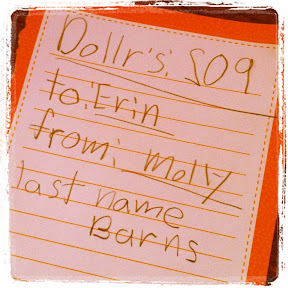 Dollr's: 209
to: Erin
from: Molly
last name
Barns